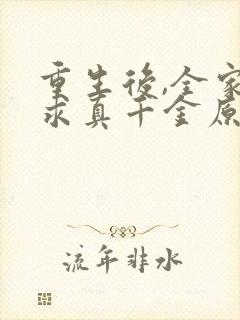 重生後,全家
求真千金原
流年非水